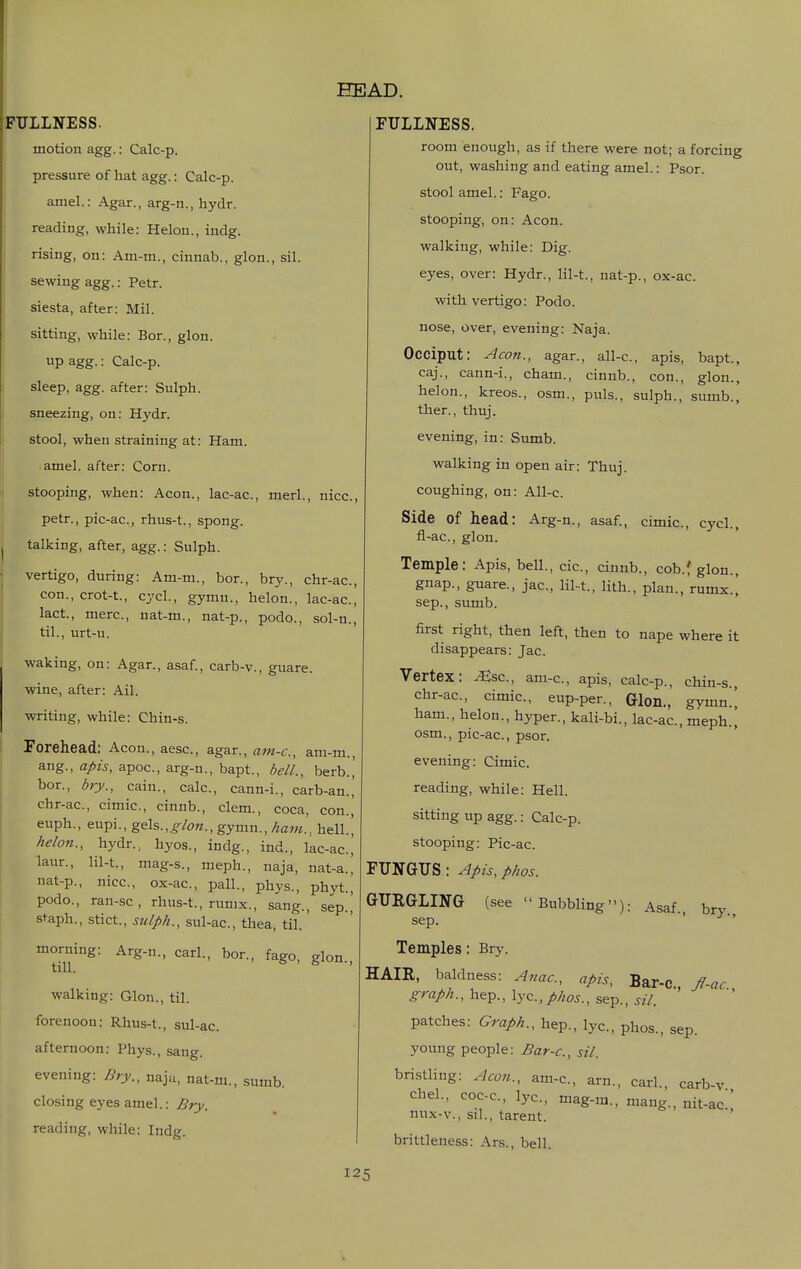 HEAD.
FULLNESS.
motion agg.: Calc-p.
pressure of hat agg.: Calc-p.
amel.: Agar., arg-n., hydr.
reading, while: Helon., indg.
rising, on: Am-m., cinnab., glon., sil.
sewing agg.: Petr.
siesta, after: Mil.
sitting, while: Bor., glon.
up agg.: Calc-p.
sleep, agg. after: Sulph.
sneezing, on: Hydr.
stool, when straining at: Ham.
amel. after: Corn.
stooping, when: Acon., lac-ac., merl., nicc.,
petr., pic-ac., rhus-t., spong.
talking, after, agg.: Sulph.
vertigo, during: Am-m., bor., bry., chr-ac.,
con., crot-t., cycl., gymn., helon., lac-ac.,
lact., merc., nat-m., nat-p., podo., sol-n.,
til., urt-u.
waking, on: Agar., asaf., carb-v., guare.
wine, after: Ail.
writing, while: Chin-s.
Forehead: Acon., aesc., agar., am-c., am-m.,
ang., apis, apoc., arg-n., bapt., bell., berb.,
bor., bry., cain., calc., cann-i., carb-an.,
chr-ac., cimic., cinnb., clem., coca, con.,
euph., eupi., gels., glon., gymn., ham., hell.,
helon., hydr., hyos., indg., ind., lac-ac.,
laur., lil-t., mag-s., meph., naja, nat-a.,
nat-p., nicc., ox-ac., pall., phys., phyt.,
podo., ran-sc, rhus-t., rumx., sang., sep.,
staph., stict., sulph., sul-ac., thea, til.
morning: Arg-n., carl., bor., fago, glon.,
till.
walking: Glon., til.
forenoon: Rhus-t., sul-ac.
afternoon: Phys., sang.
evening: Bry., naja, nat-m., sumb.
closing eyes amel.: Bry.
reading, while: Indg.
FULLNESS.
room enough, as if there were not; a forcing
out, washing and eating amel.: Psor.
stool amel.: Fago.
stooping, on: Acon.
walking, while: Dig.
eyes, over: Hydr., lil-t., nat-p., ox-ac.
with vertigo: Podo.
nose, over, evening: Naja.
Occiput: Acon., agar., all-c., apis, bapt.,
caj., cann-i., cham., cinnb., con., glon.,
helon., kreos., osm., puls., sulph., sumb.,
ther., thuj.
evening, in: Sumb.
walking in open air: Thuj.
coughing, on: All-c.
Side of head: Arg-n., asaf., cimic., cycl.,
fl-ac., glon.
Temple: Apis, bell., cic., cinnb., cob., glon.,
gnap., guare., jac., lil-t., lith., plan., rumx.,
sep., sumb.
first right, then left, then to nape where it
disappears: Jac.
Vertex: Æsc., am-c., apis, calc-p., chin-s.,
chr-ac., cimic., eup-per., Glon., gymn.,
ham., helon., hyper., kali-bi., lac-ac., meph.,
osm., pic-ac., psor.
evening: Cimic.
reading, while: Hell.
sitting up agg.: Calc-p.
stooping: Pic-ac.
FUNGUS: Apis, phos.
GURGLING (see "Bubbling"): Asaf., bry.,
sep.
Temples: Bry.
HAIR, baldness: Anac., apis, Bar-c., fl-ac.,
graph., hep., lyc., phos., sep., sil.
patches: Graph., hep., lyc., phos., sep.
young people: Bar-c., sil.
bristling: Acon., am-c., arn., carl., carb-v.,
chel., coc-c., lyc., mag-m., mang., nit-ac.,
nux-v., sil., tarent.
brittleness: Ars., bell.
125